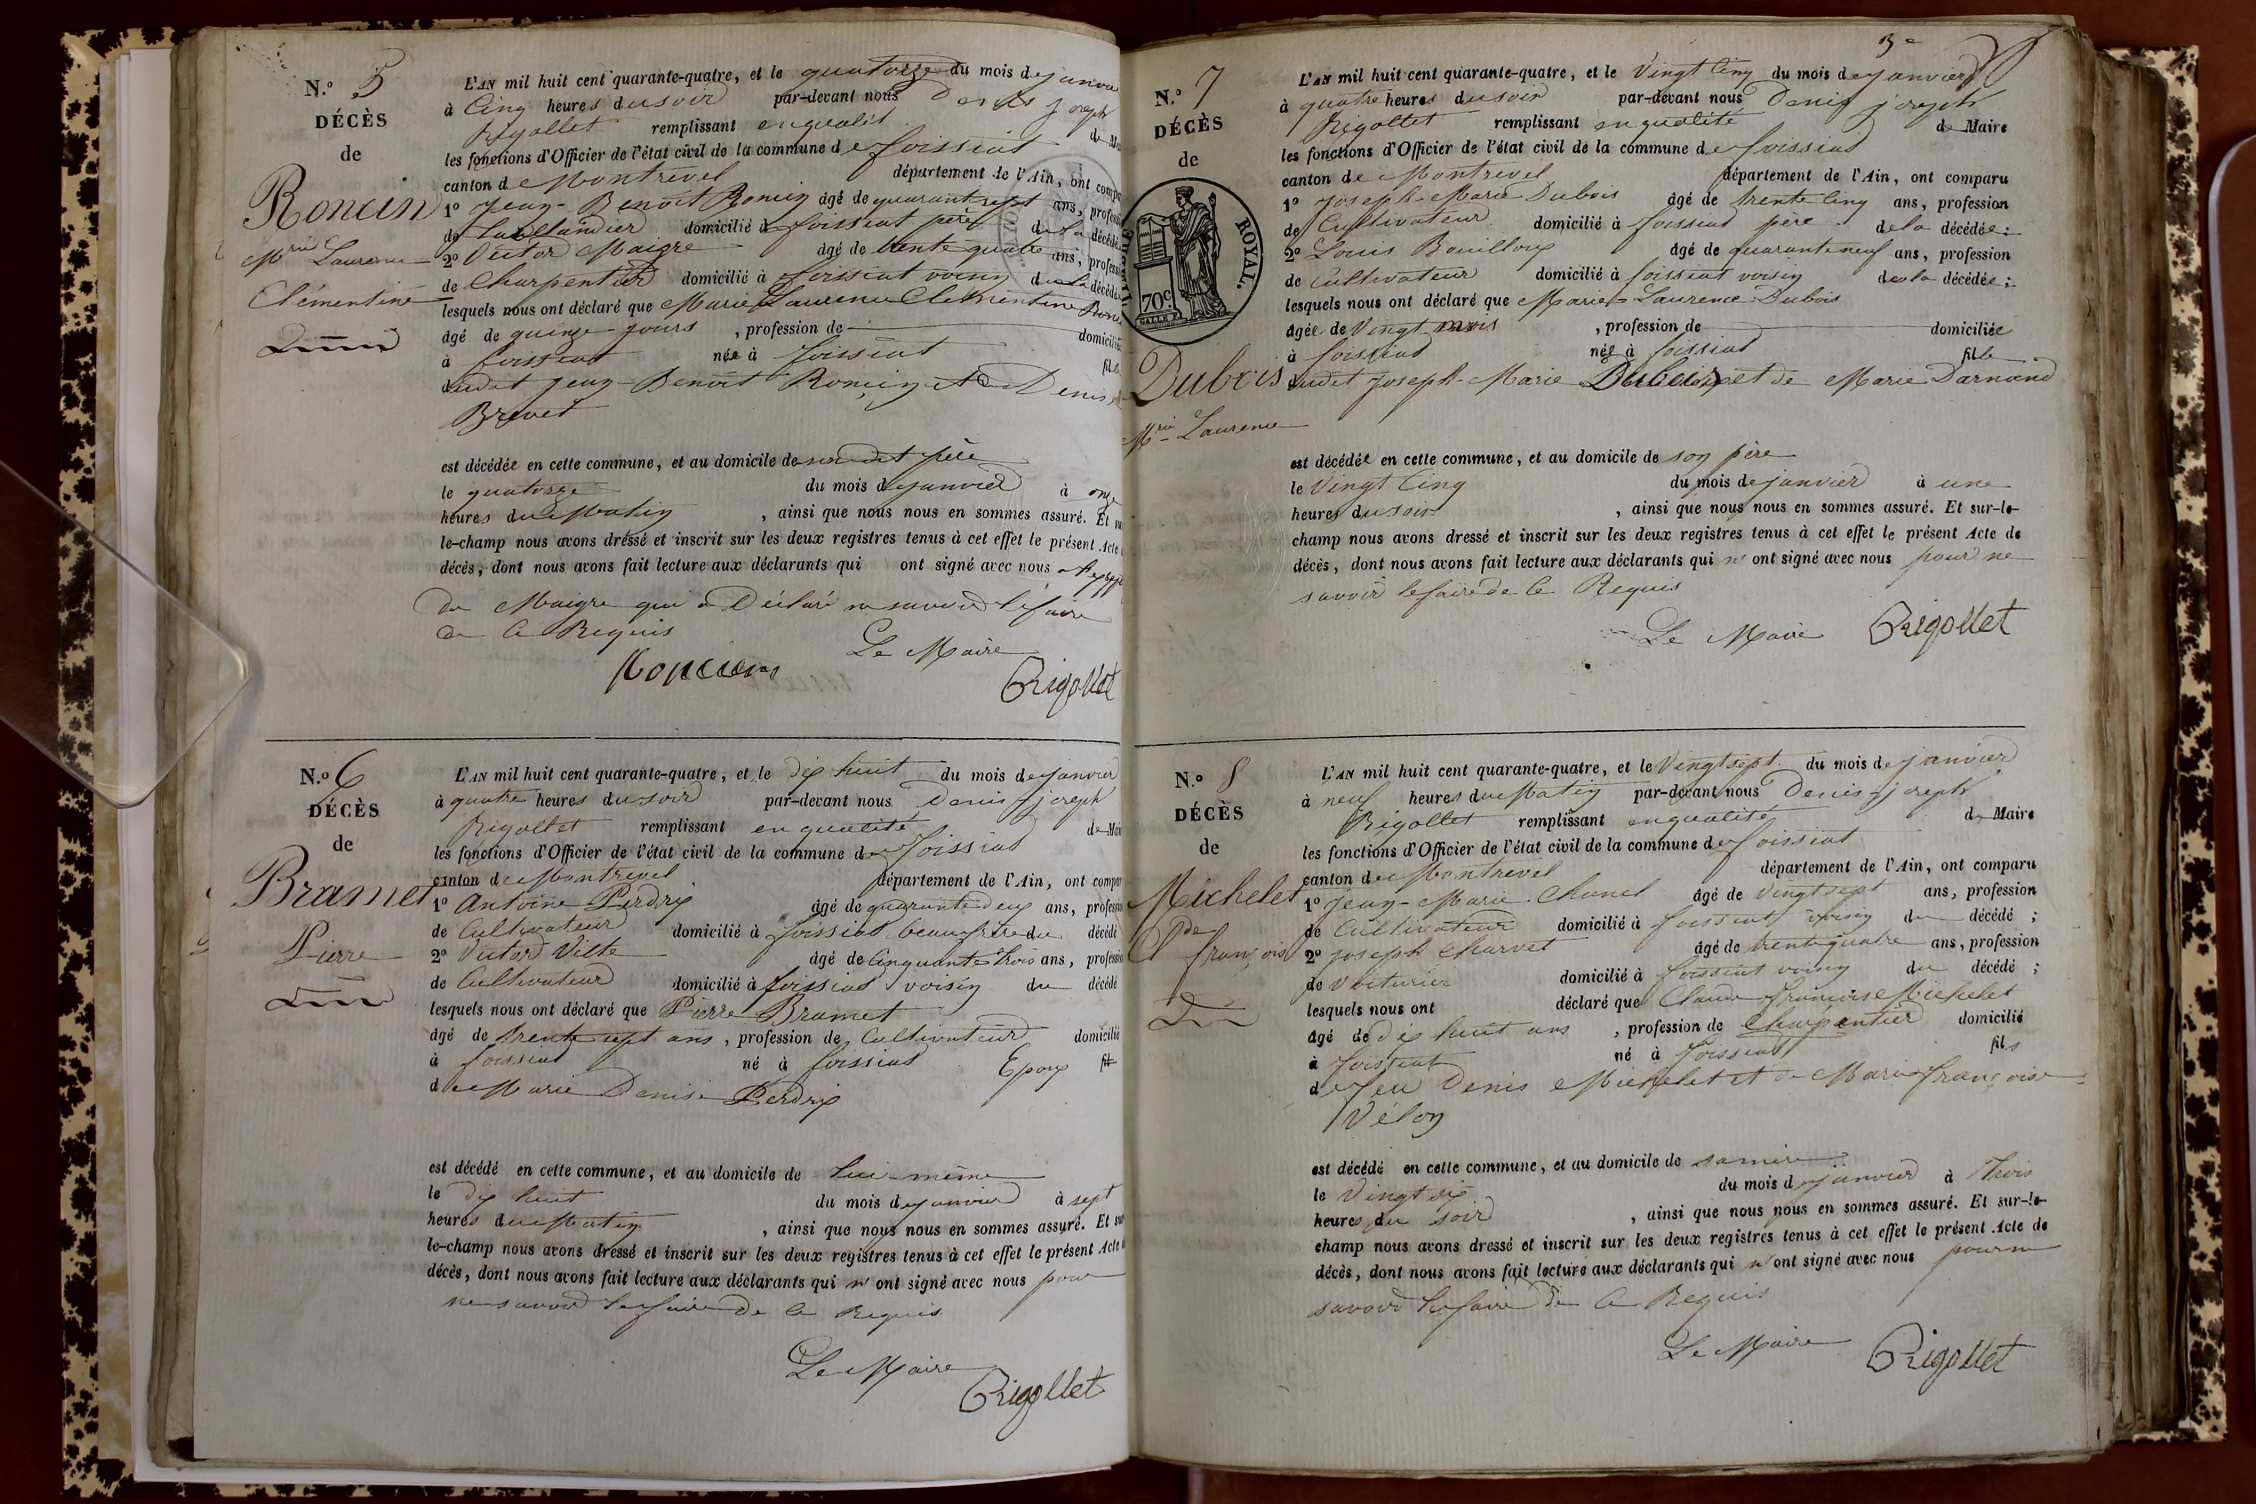 N.o 5
DÉCÈS
de
Roncin
Mrie Laurence
Clémentine
L'AN mil huit cent quarante-quatre, et le quatorze du mois de janvier
à Cinq heures du soir par-devant nous Denis joseph
Rigollet remplissant en qualité de Maire
les fonctions d'Officier de l'état civil de la commune de foissiat
canton de Montrevel département de l'Ain, ont comparu
1o Jean-Benoit Roncin âgé de quarant sept ans, profession
de taillandier domicilié à foissiat père de la décédée
2o Victor Maigre âgé de trente quatre ans, profession
de Charpentier domicilié à foissiat voisin de la décédée
lesquels nous ont déclaré que Marie Laurence Clémentine Ronc
âgé de quinze jours , profession de domiciliée
à foissiat née à foissiat fille
dudit Jean-Benoit Roncin et de Denise
Brevet
est décédée en cette commune, et au domicile de sondit père
le quatorze du mois de janvier à onze
heures du Matin , ainsi que nous nous en sommes assuré. Et sur
le-champ nous avons dressé et inscrit sur les deux registres tenus à cet effet le présent Acte
décès, dont nous avons fait lecture aux déclarants qui ont signé avec nous
du Maigre qui a Déclaré ne savoir le faire
de Ce Requis
Le Maire
Roncin
Rigollet
N.o 6
DÉCÈS
de
Bramet
Pierre
L'AN mil huit cent quarante-quatre, et le dix huit du mois de janvier
à quatre heures du soir par-devant nous Denis-joseph
Rigollet remplissant en qualité de Maire
les fonctions d'Officier de l'état civil de la commune de foissiat
canton de Montrevel département de l'Ain, ont comparu
1o Antoine Perdrix âgé de quarante deux ans, profession
de Cultivateur domicilié à foissiat beaufrère du décédé
2o Victor Vilte âgé de Cinquante trois ans, profession
de Cultivateur domicilié à foissiat voisin du décédé
lesquels nous ont déclaré que Pierre Bramet
âgé de trente sept ans , profession de Cultivateur domicilié
à foissiat né à foissiat Epoux fils
de Marie Denise Perdrix
est décédé en cette commune, et au domicile de lui-même
le dix huit du mois de janvier à sept
heures du Matin , ainsi que nous nous en sommes assuré. Et sur
le-champ nous avons dressé et inscrit sur les deux registres tenus à cet effet le présent Acte
décès, dont nous avons fait lecture aux déclarants qui n'ont signé avec nous pour
ne savoir le faire De Ce Requis
Le Maire
Rigollet
3e
N.o 7
DÉCÈS
de
ROYAL.
70c.
Dubois
Mrie Laurence
L'AN mil huit cent quarante-quatre, et le Vingt Cinq du mois de janvier
à quatre heures du soir par-devant nous Denis joseph
Rigollet remplissant en qualité de Maire
les fonctions d'Officier de l'état civil de la commune de foissiat
canton de Montrevel département de l'Ain, ont comparu
1o Joseph-Marie Dubois âgé de trente Cinq ans, profession
de Cultivateur domicilié à foissiat père de la décédée;
2o Louis Bouilloux âgé de quarante neuf ans, profession
de Cultivateur domicilié à foissiat voisin de la décédée;
lesquels nous ont déclaré que Marie-Laurence Dubois
âgée de Vingt mois , profession de domiciliée
à foissiat née à foissiat fille
dudit Joseph-Marie Dubois et de Marie Darnand
est décédée en cette commune, et au domicile de son père
le Vingt Cinq du mois de janvier à une
heures du soir , ainsi que nous nous en sommes assuré. Et sur-le-
champ nous avons dressé et inscrit sur les deux registres tenus à cet effet le présent Acte de
décès, dont nous avons fait lecture aux déclarants qui n'ont signé avec nous pour ne
savoir le faire de Ce Requis
Le Maire Rigollet
N.o 8
DÉCÈS
de
Michelet
Cde
françois
L'AN mil huit cent quarante-quatre, et le Vingt sept du mois de janvier
à neuf heures du Matin par-devant nous Denis-joseph
Rigollet remplissant en qualité de Maire
les fonctions d'Officier de l'état civil de la commune de foissiat
canton de Montrevel département de l'Ain, ont comparu
1o Jean-Marie Chanel âgé de Vingt sept ans, profession
de Cultivateur domicilié à foissiat voisin du décédé ;
2o Joseph Charvet âgé de trente quatre ans, profession
de Voiturier domicilié à foissiat voisin du décédé ;
lesquels nous ont déclaré que Claude françois Michelet
âgé de dix huit ans , profession de Charpentier domicilié
à foissiat né à foissiat fils
de feu Denis Michelet et de Marie françoise
Vélon
est décédé en cette commune, et au domicile de sa mère
le Vingt six du mois de janvier à trois
heures du soir , ainsi que nous nous en sommes assuré. Et sur-le-
champ nous avons dressé et inscrit sur les deux registres tenus à cet effet le présent Acte de
décès, dont nous avons fait lecture aux déclarants qui n'ont signé avec nous pour ne
savoir le faire de Ce Requis
Le Maire Rigollet